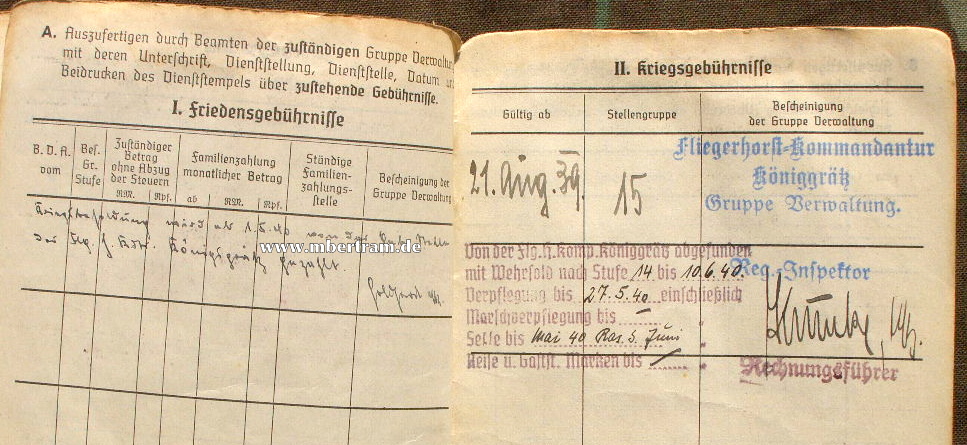 A. Auszufertigen durch Beamten der zuständigen Gruppe Verwaltu
mit deren Unterschrift, Dienststellung, Dienststelle, Datum u
Beidrucken des Dienststempels über zustehende Gebührnisse.
I. Friedensgebührnisse
B. D. A. vom
Bes. Gr. Stufe
Zuständiger Betrag ohne Abzug der Steuern
RM. Rpf.
Familienzahlung monatlicher Betrag
ab RM. Rpf.
Ständige Familien-zahlungs-stelle
Bescheinigung der Gruppe Verwaltung
Kriegsbesoldung wird ab 1.5.40 von der
der Flg. H. Kdtr. Königgrätz gezahlt.
www.mbertram.de
II. Kriegsgebührnisse
Gültig ab
Stellengruppe
Bescheinigung
der Gruppe Verwaltung
21. Aug. 39.
15
Fliegerhorst-Kommandantur
Königgrätz
Gruppe Verwaltung.
Von der Flg.H.Komp.Königgrätz abgefunden
mit Wehrsold nach Stufe 14 bis 10.6.40.
Verpflegung bis 27.5.40 einschließlich
Marschverpflegung bis –
Seife bis Mai 40 Ras. S. Juni
Reise u. Gastst. Marken bis
Reg.-Inspektor
Rechnungsführer